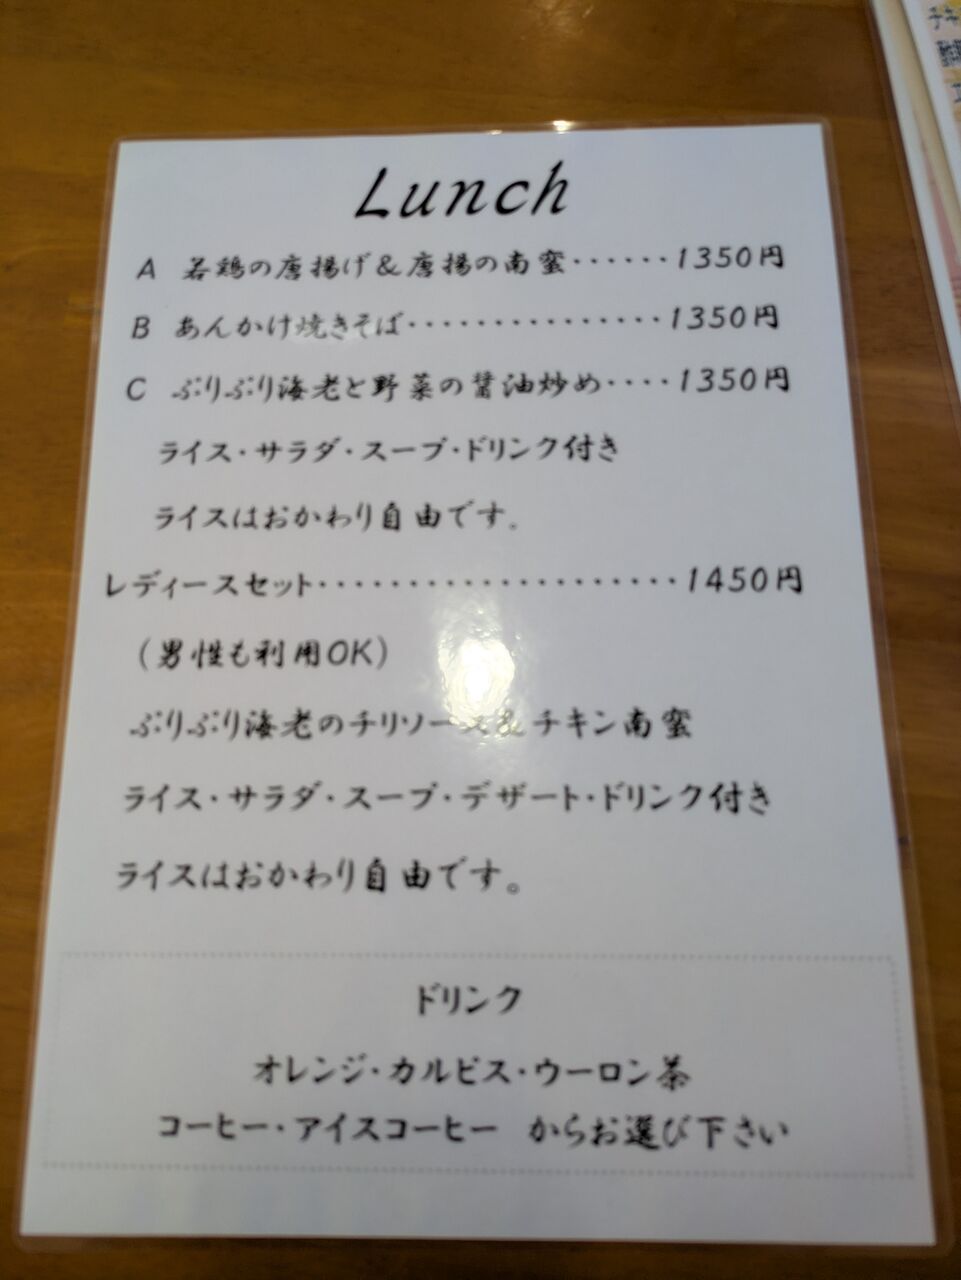 Lunch
A 若鶏の唐揚げ&唐揚の南蛮······1350円
B あんかけ焼きそば···············1350円
C ぷりぷり海老と野菜の醤油炒め····1350円
ライス・サラダ・スープ・ドリンク付き
ライスはおかわり自由です。
レディースセット····················1450円
(男性も利用OK)
ぷりぷり海老のチリソース&チキン南蛮
ライス・サラダ・スープ・デザート・ドリンク付き
ライスはおかわり自由です。
ドリンク
オレンジ・カルピス・ウーロン茶
コーヒー・アイスコーヒー からお選び下さい
チキ